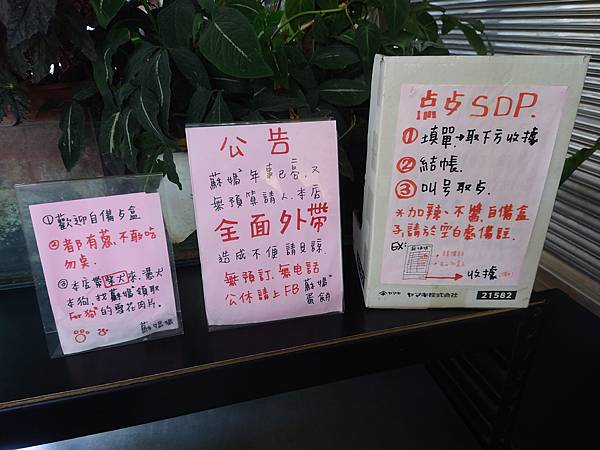 ①歡迎自備卡盒
②都有蔥、不敢吃
勿點
③本店帶陳犬來、憑犬
本狗、找蘇媽媽領取
For 狗的雪花肉片。
蘇媽媽
公告
蘇媽年事已高、又
無預算請人.本店
全面外帶
造成不便請見諒.
無預訂.無電話
公休請上FB 蘇媽
蛋餅
点点SDP.
①填單→取下方收據
②結帳
③叫号取点
*加辣、不醬、自備盒
子請於空白處備註.
EX:
→收據
ヤマキ ヤマキ株式会社
21582